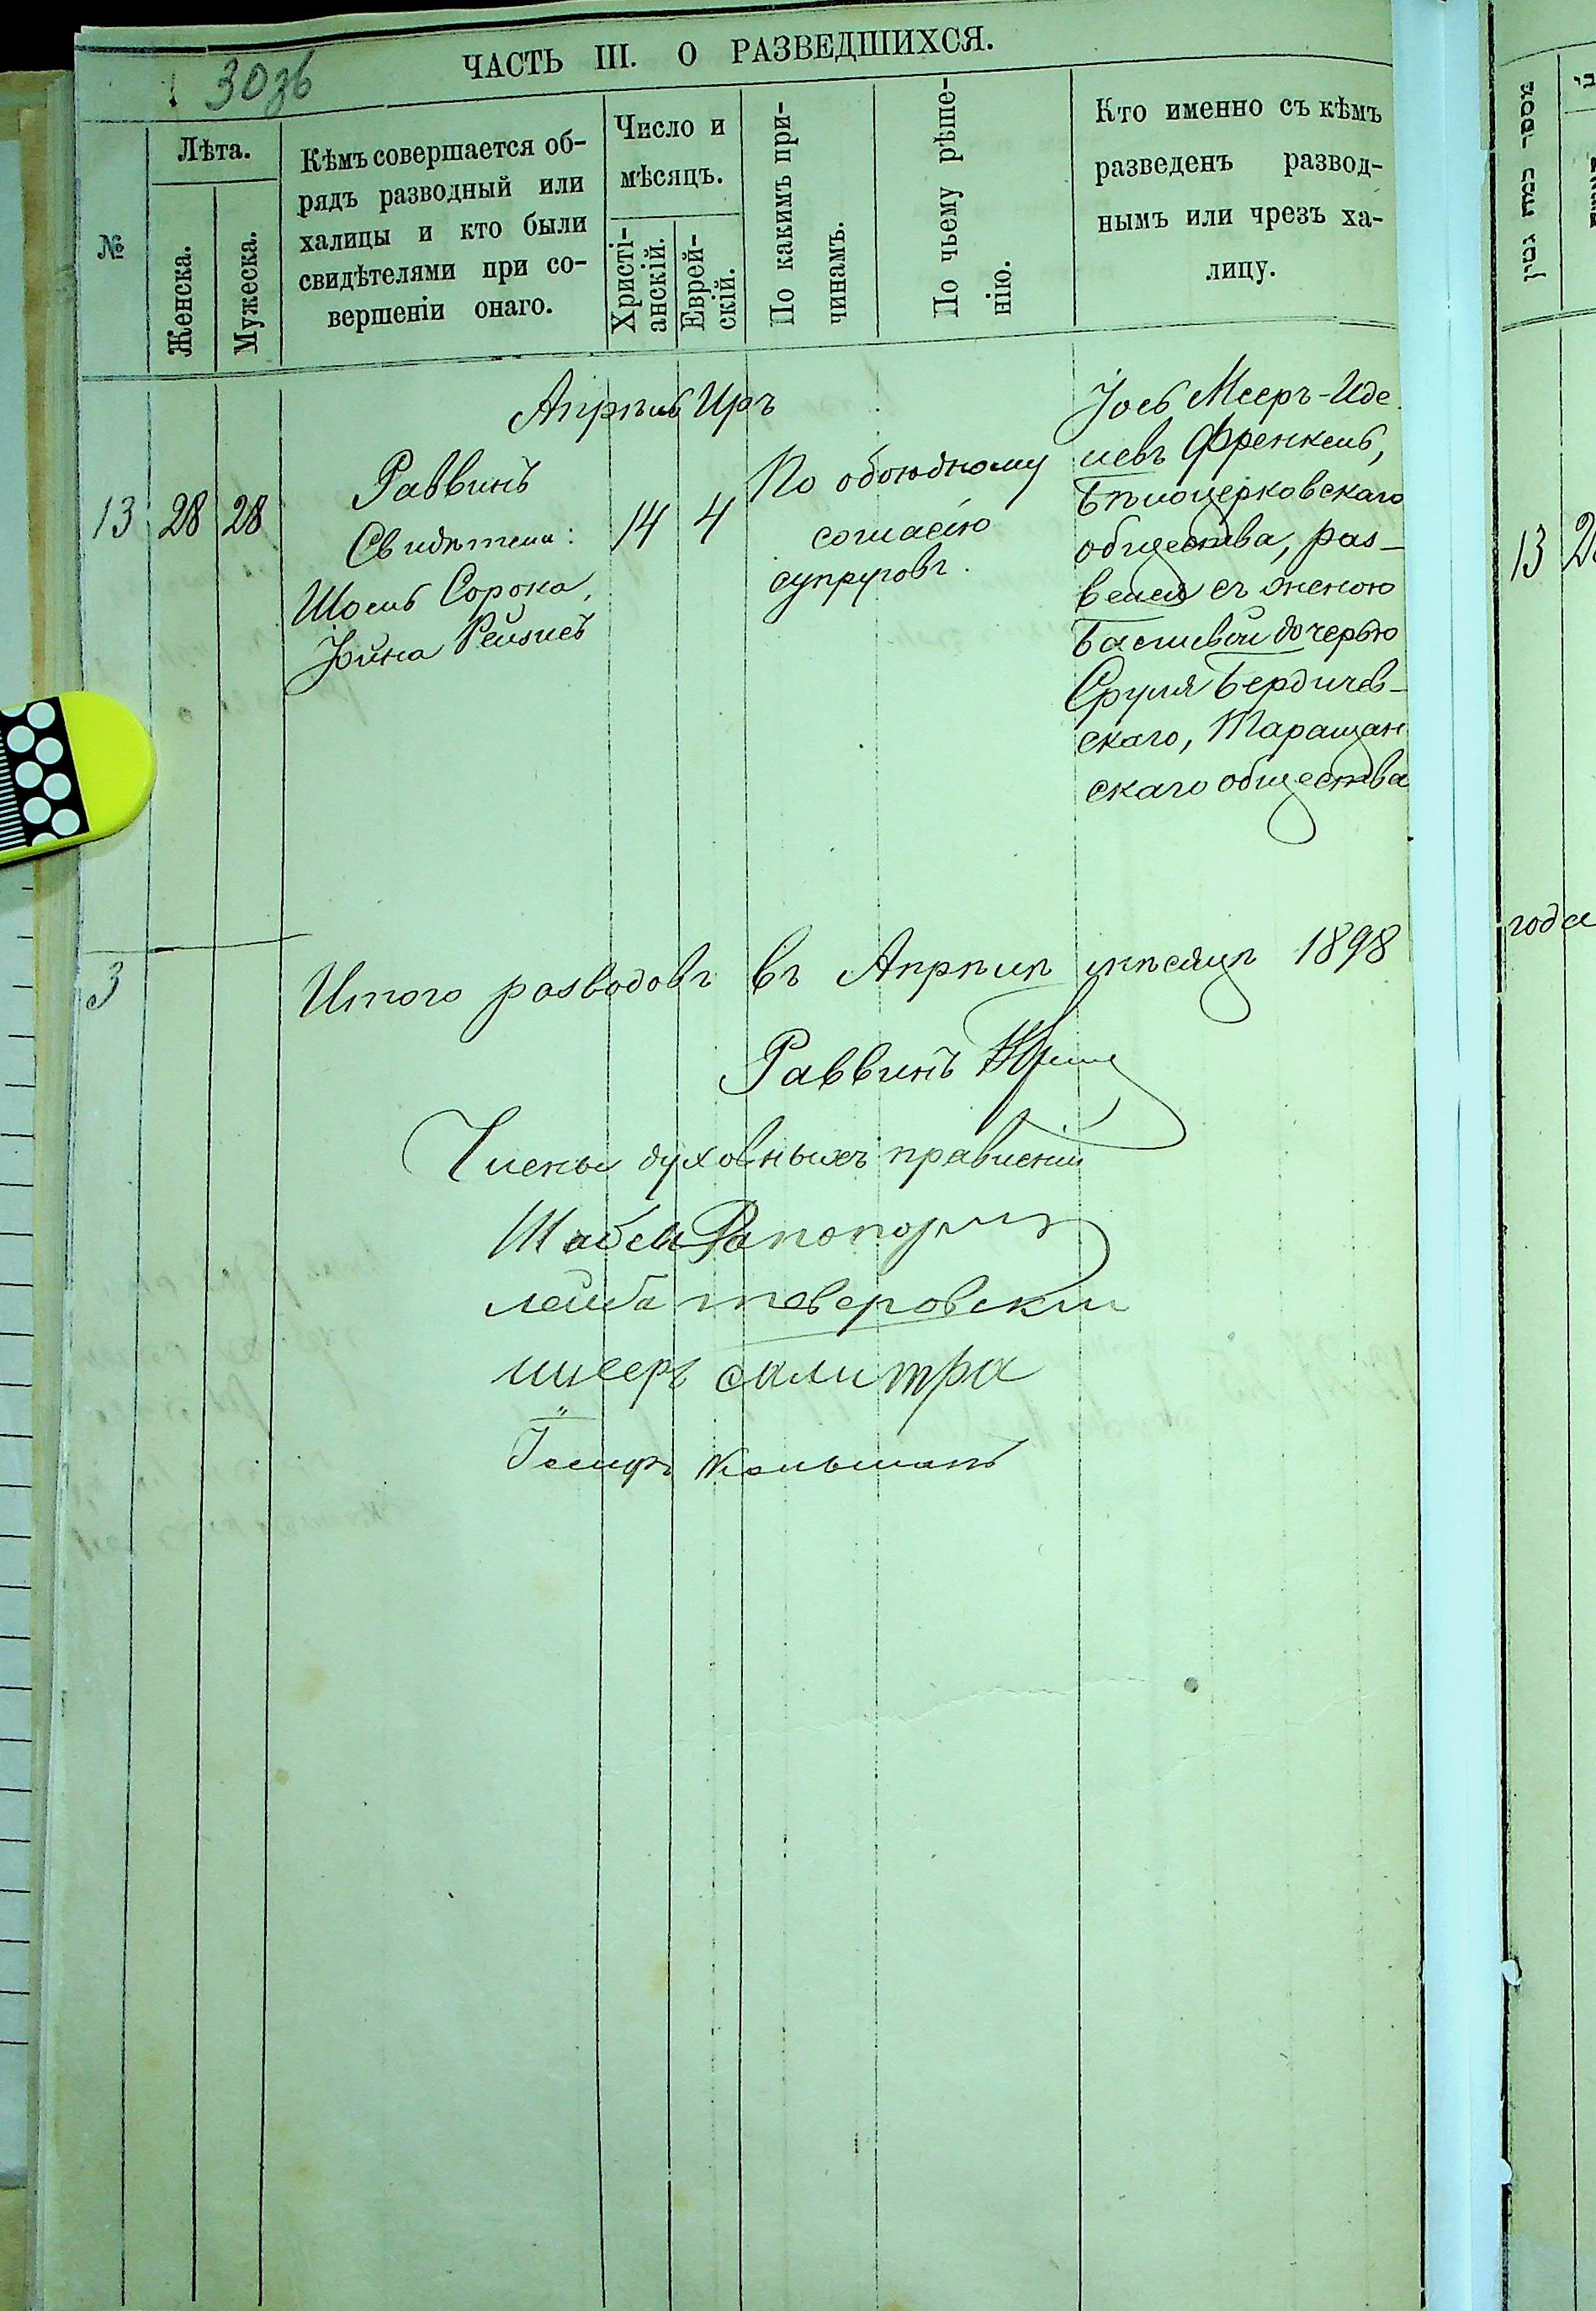 ЧАСТЬ III. О РАЗВЕДШИХСЯ.
30зв
№
Лѣта.
Женска.
Мужеска.
Кѣмъ совершается об-
рядъ разводный или
халицы и кто были
свидѣтелями при со-
вершеніи онаго.
Число и
мѣсяцъ.
Христі-
анскій.
Еврей-
скій.
По какимъ при-
чинамъ.
По чьему рѣше-
нію.
Кто именно съ кѣмъ
разведенъ развод-
нымъ или чрезъ ха-
лицу.
Апрѣль Иръ
13 28 28
Раввинъ
Свидѣтели:
Шоель Сорока,
Іойна Рейзисъ
14 4
По обоюдному
согласію
супруговъ.
Іось Мееръ-Иде
левъ Френкель,
Бѣлоцерковскаго
общества, раз-
велся съ женою
Басшевой дочерью
Сруля Бердичев-
скаго, Таращан
скаго общества
3
Итого разводовъ въ Апрѣлѣ мѣсяцѣ 1898
Раввинъ
Члены духовныхъ правленій
Рапопортъ
лейба тверовскии
мееръ салитра
Іосифъ Кельманъ
מספר כמה גטין
13
года